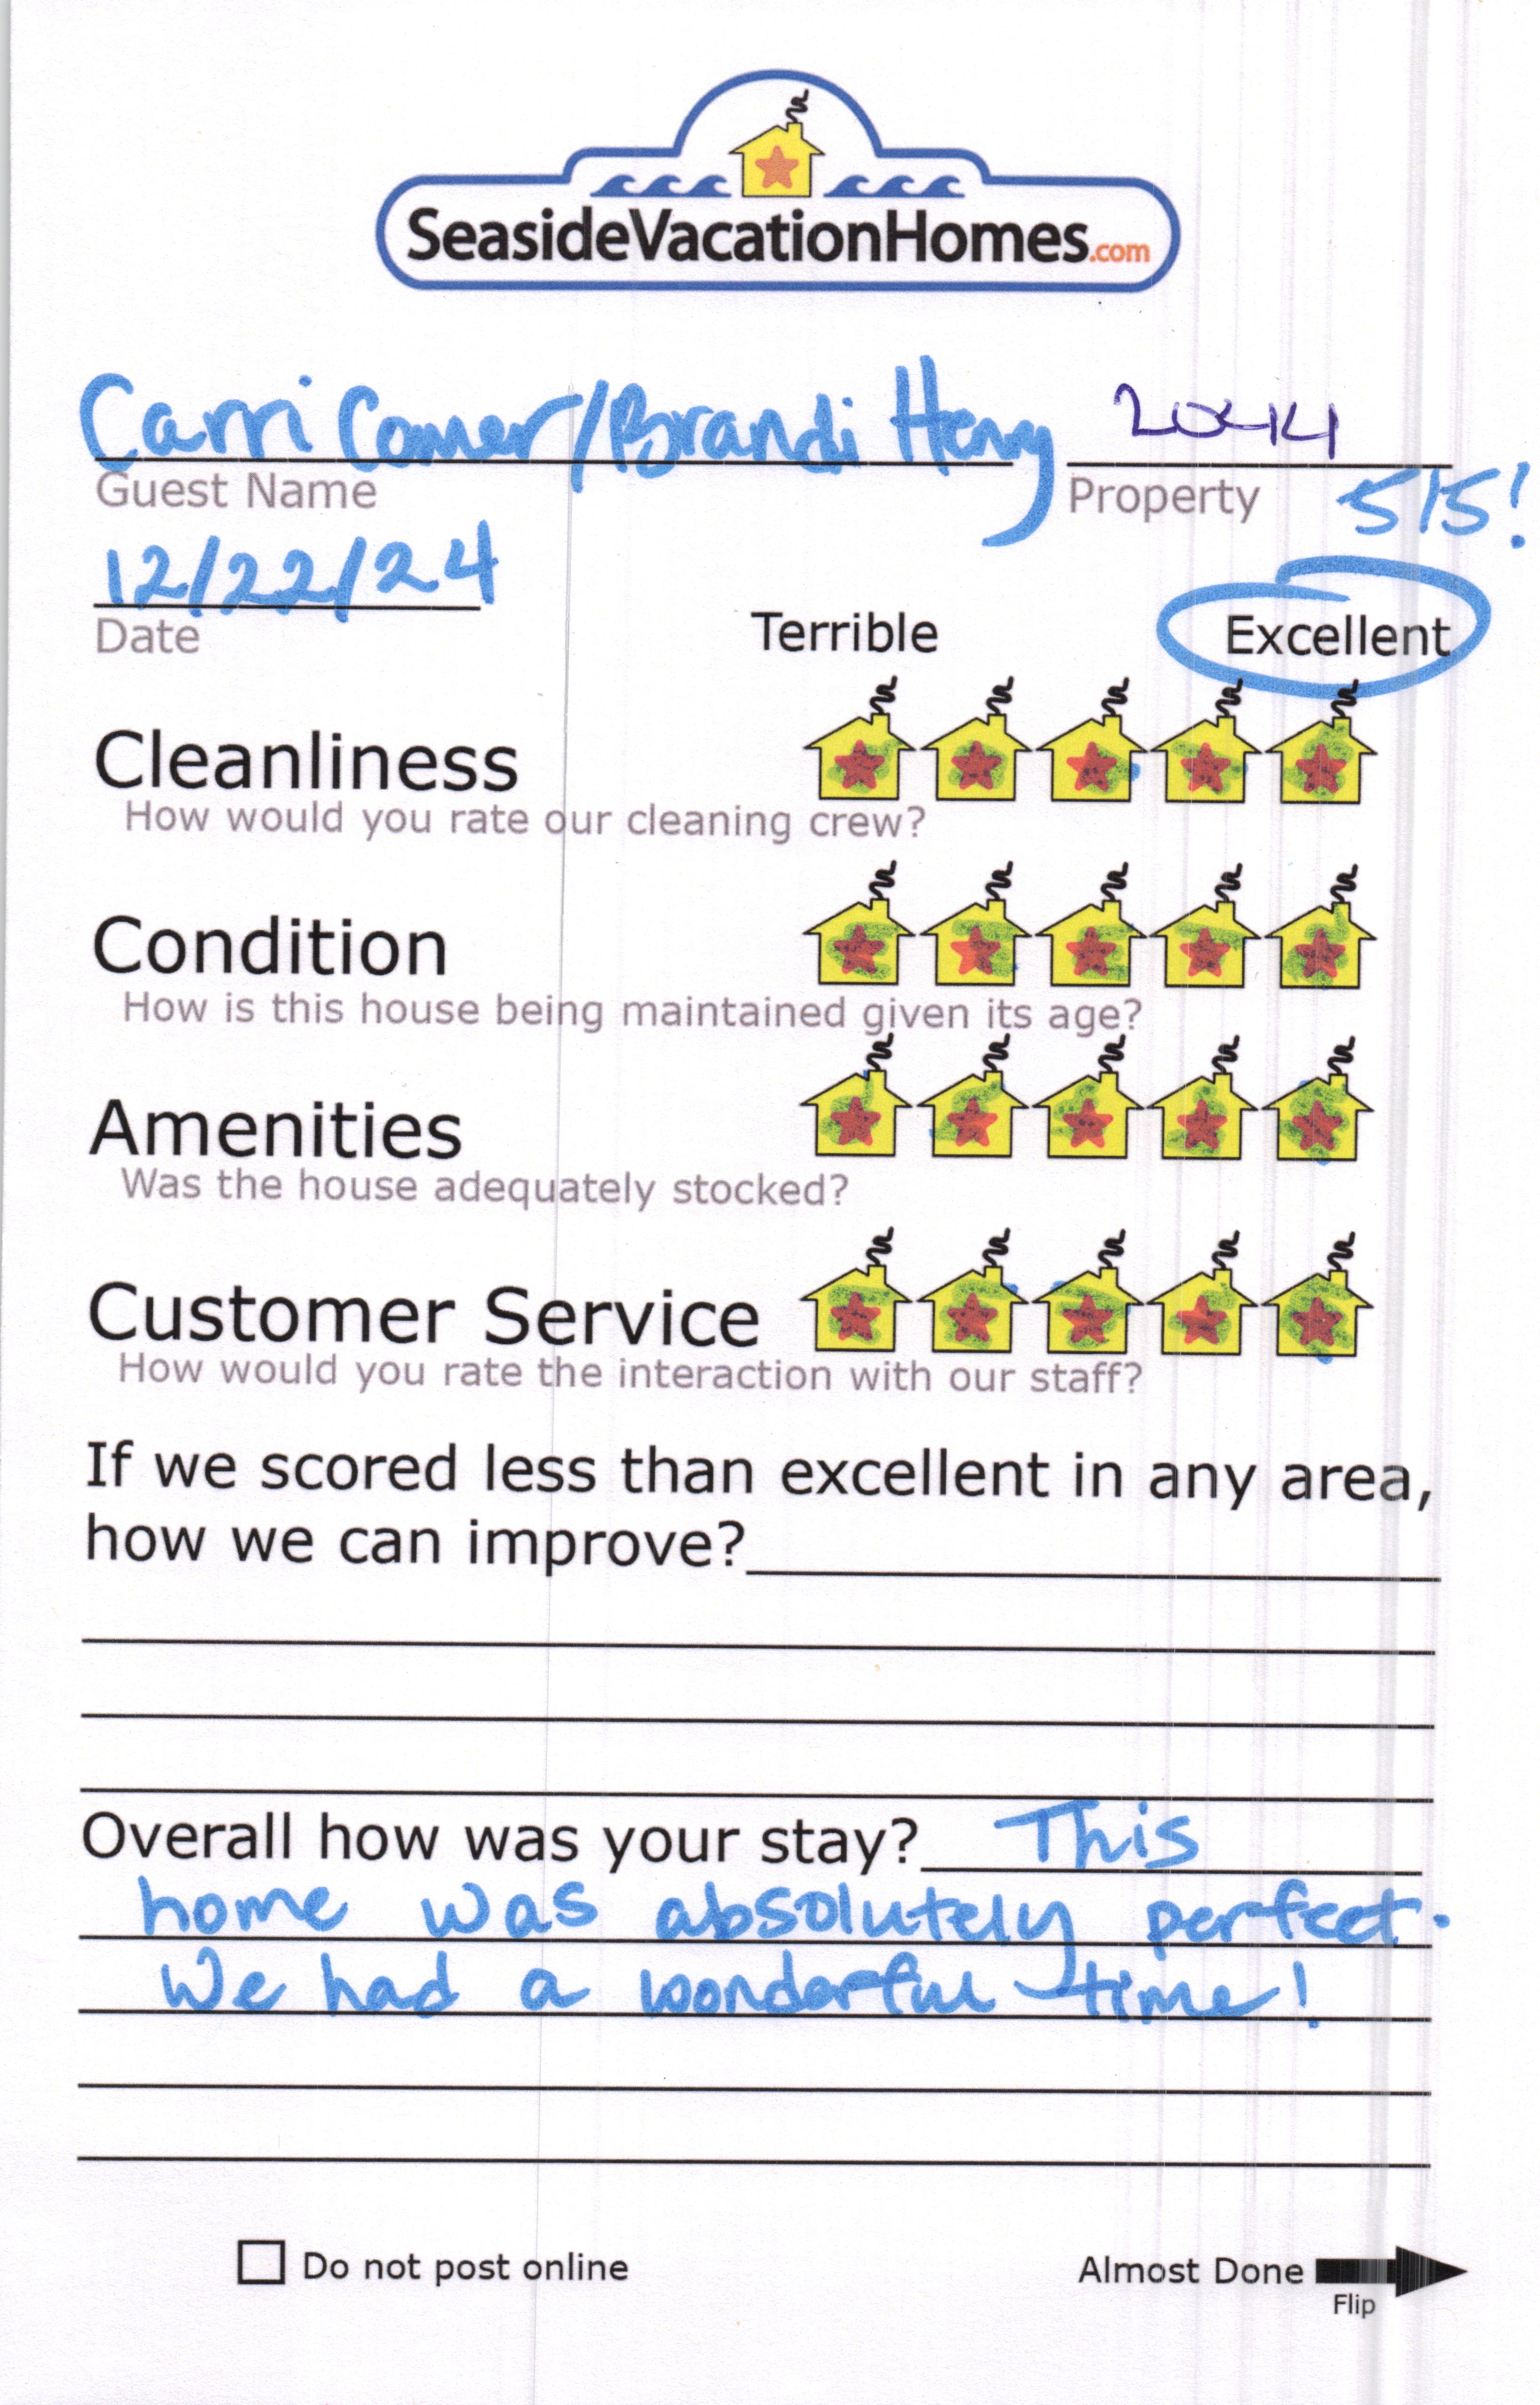 SeasideVacationHomes.com
Carri Comer/Brandi Henry 2044
Guest Name Property 5/5!
12/22/24
Date
Terrible Excellent
Cleanliness
How would you rate our cleaning crew?
Condition
How is this house being maintained given its age?
Amenities
Was the house adequately stocked?
Customer Service
How would you rate the interaction with our staff?
If we scored less than excellent in any area,
how we can improve?
Overall how was your stay? This
home was absolutely perfect.
We had a wonderful time!
Do not post online Almost Done
Flip